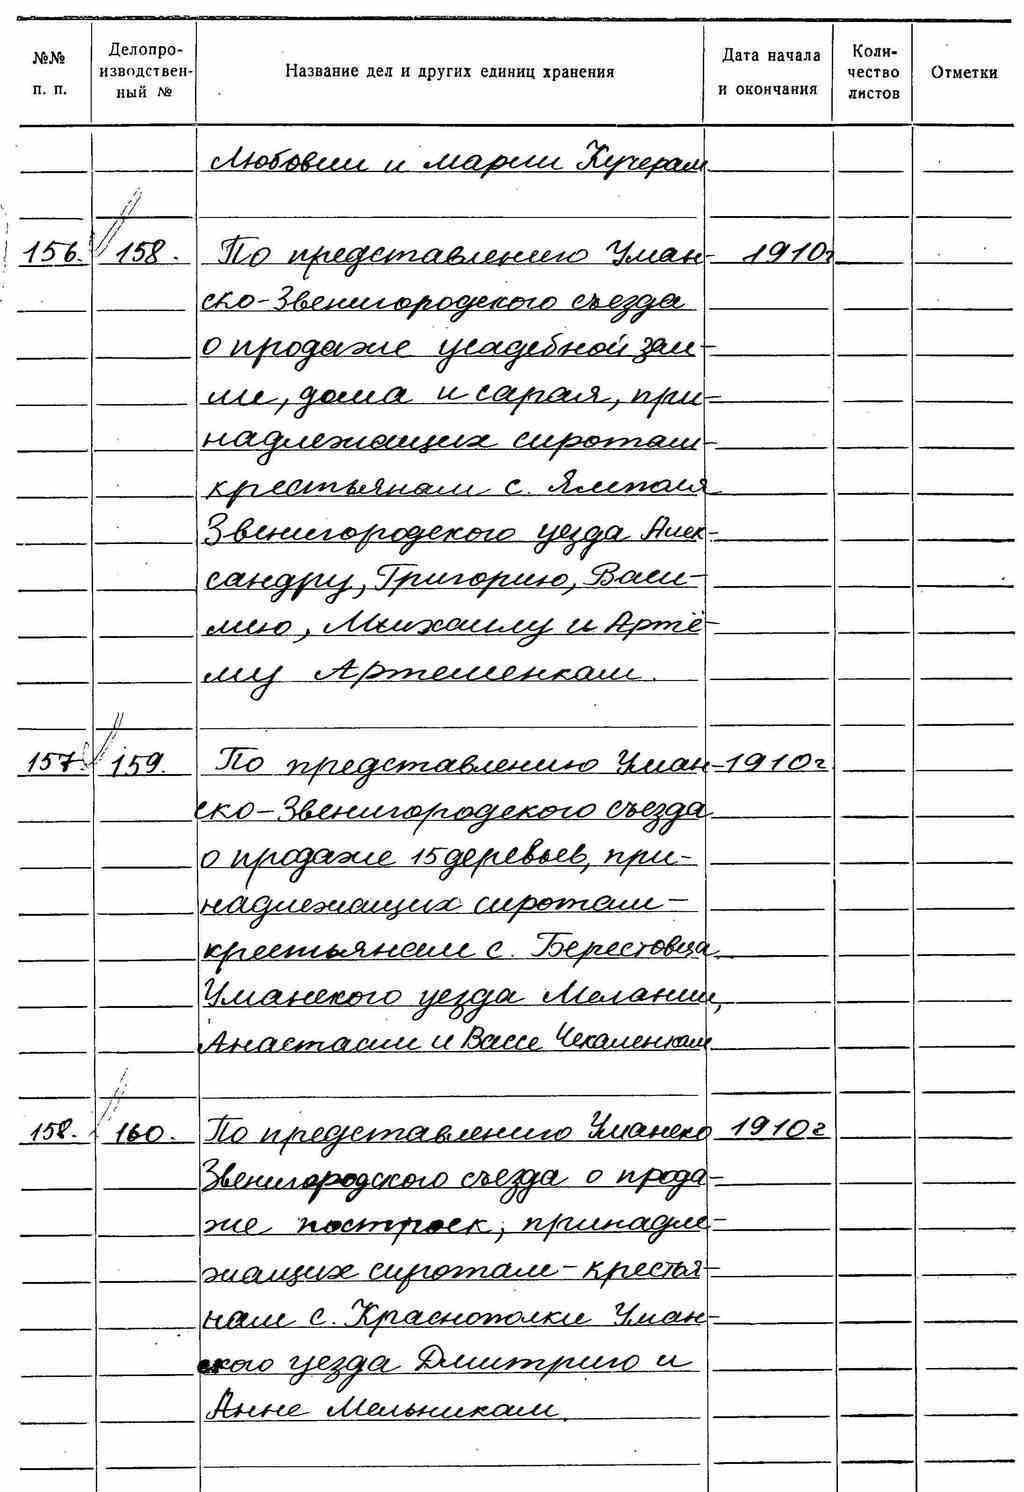 №№ п. п. Делопроизводственный № Название дел и других единиц хранения Дата начала и окончания Количество листов Отметки
Любовии и Марии Кучерам
156. 158. По представлению Уман- 1910г
ско-Звенигородского съезда
о продаже усадебной зем-
ли, дома и сарая, при-
надлежащих сиротам-
крестьянам с. Ямполя
Звенигородского уезда Алек-
сандру, Григорию, Васи-
лию, Михаилу и Артё-
му Артеменкам.
157 159. По представлению Уман- 1910г
ско-Звенигородского съезда
о продаже 15 деревьев, при-
надлежащих сиротам-
крестьянам с. Берестовца
Уманского уезда Мелании,
Анастасии и Вассе Чекаленкам
158. 160. По представлению Уманско 1910г
Звенигородского съезда о прода-
же построек, принадле-
жащих сиротам-крестья-
нам с. Краснополки Уман-
ского уезда Дмитрию и
Анне Мельникам.